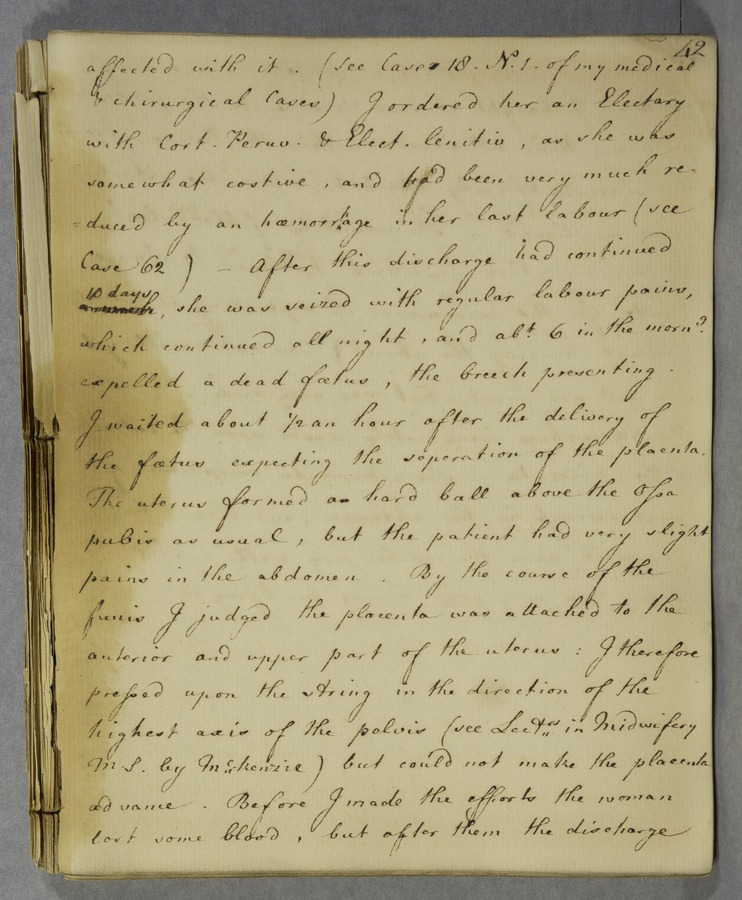 42
affected with it . (see Case 18 . No. 1 . of my medical
& chirurgical Cases) I ordered her an Electary
with Cort . Peruv . & Elect . lenitiv , as she was
somewhat costive , and had been very much re-
=duced by an hæmorrhage in her last labour (see
Case 62 ) – After this discharge had continued
10 days, she was seized with regular labour pains,
which continued all night , and abt. 6 in the morng.
expelled a dead fœtus , the breech presenting .
I waited about 1/2 an hour after the delivery of
the fœtus expecting the seperation of the placenta.
The uterus formed a hard ball above the ossa
pubis as usual , but the patient had very slight
pains in the abdomen . By the course of the
funis I judged the placenta was attached to the
anterior and upper part of the uterus : I therefore
pressed upon the string in the direction of the
highest axis of the pelvis (see Lectrs. in Midwifery
M S. by McKenzie) but could not make the placenta
advance . Before I made the efforts the woman
lost some blood , but after them the discharge